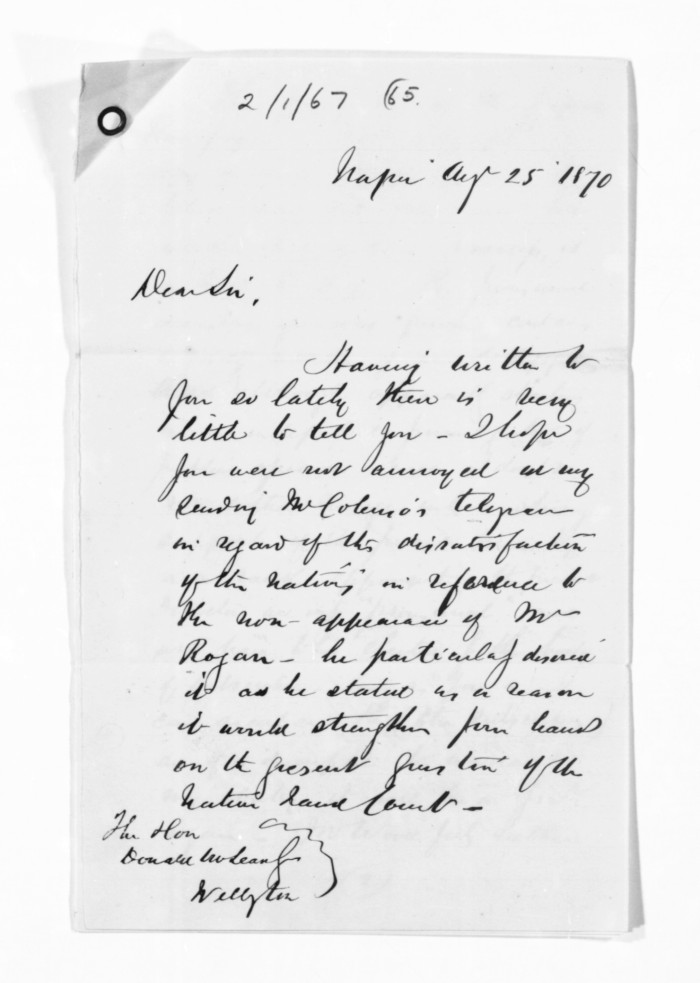 2/1/67 65.
Napier Augt 25 1870
Dear Sir,
Having written to
you so lately there is very
little to tell you - I hope
you were not annoyed at my
sending Mr Colenso's telegram
in regard of the dissatisfaction
of the natives in reference to
the non-appearance of Mr
Rogan - he particularly desired
it as he stated as a reason
it would strengthen your hand
on the present question of the
Native Land Court -
The Hon
Donald McLean
Wellgton